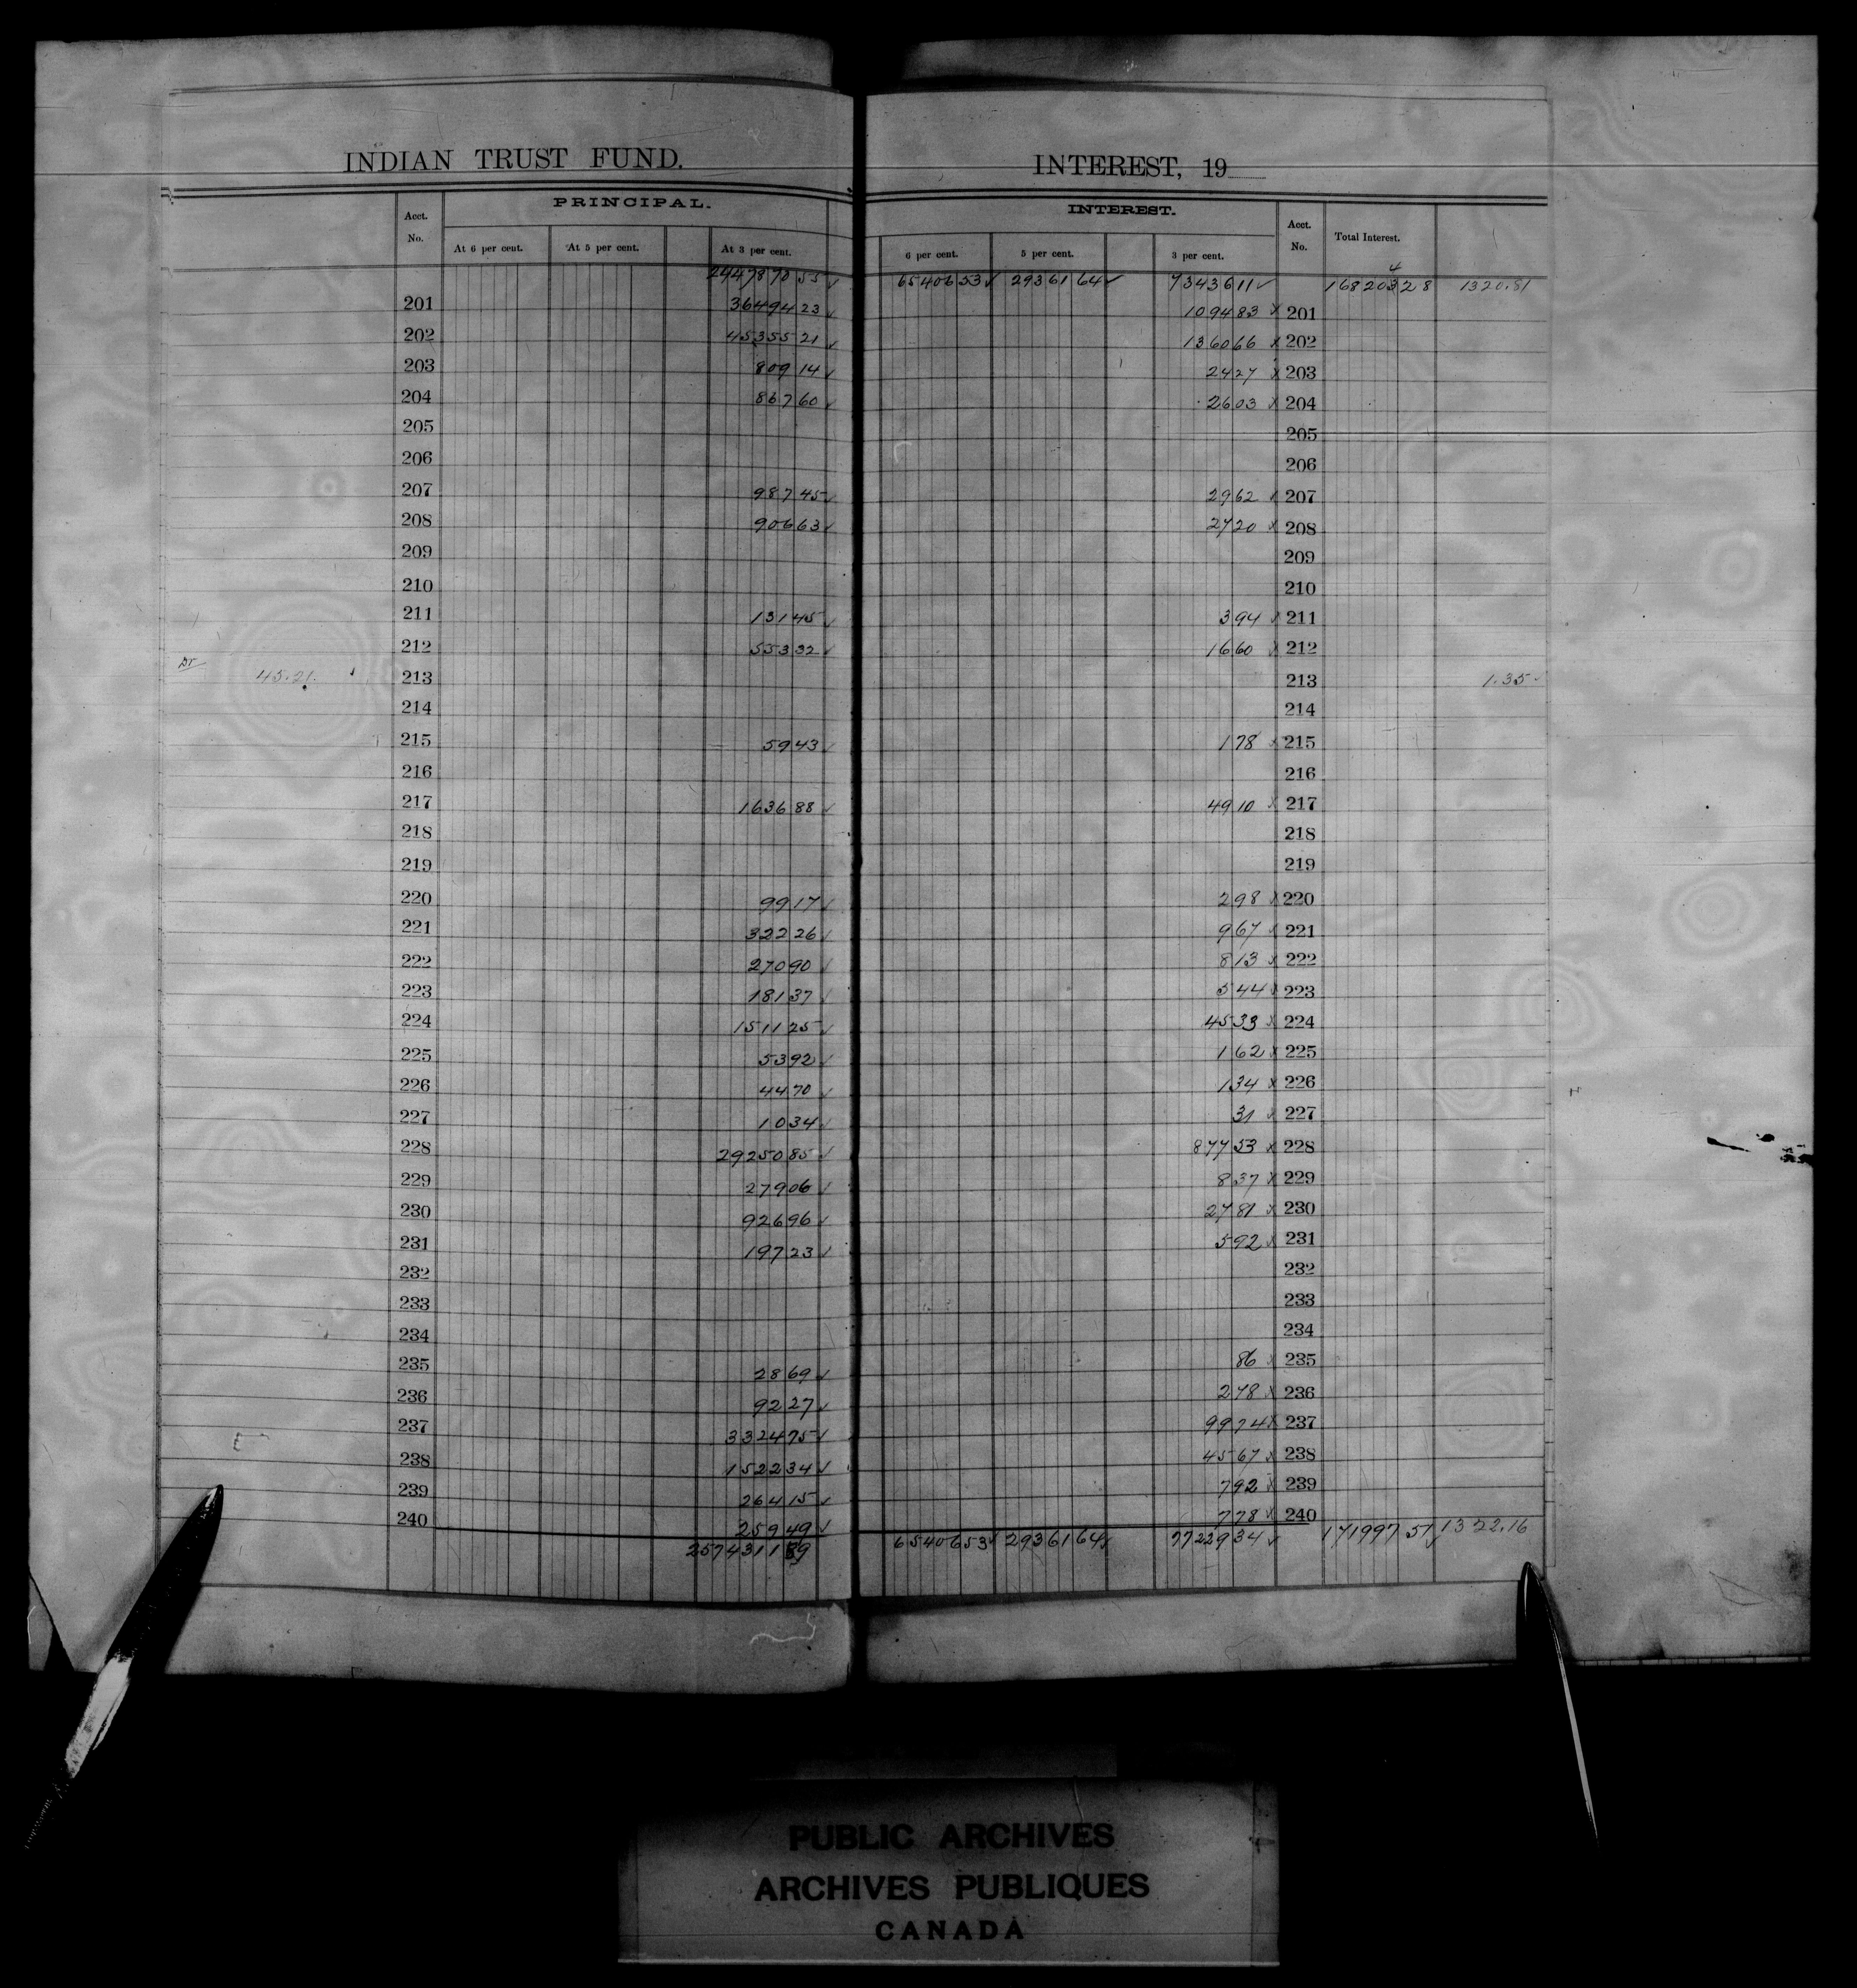 INDIAN TRUST FUND. INTEREST, 19
Acct. No. PRINCIPAL. INTEREST. Acct. No. Total Interest.
At 6 per cent. At 5 per cent. At 3 per cent. 6 per cent. 5 per cent. 3 per cent.
2447870 55 65406 53 29361 64 73436 11 168204 28 1320.81
201 36494 23 1094 83 201
202 45355 21 1360 66 202
203 809 14 24 27 203
204 867 60 26 03 204
205 205
206 206
207 987 45 29 62 207
208 906 63 27 20 208
209 209
210 210
211 131 45 3 94 211
212 553 32 16 60 212
Dr 45.21. 213 213 1.35
214 214
215 59 43 1 78 215
216 216
217 1636 88 49 10 217
218 218
219 219
220 99 17 2 98 220
221 322 26 9 67 221
222 270 90 8 13 222
223 181 37 5 44 223
224 1511 25 45 33 224
225 53 92 1 62 225
226 44 70 1 34 226
227 10 34 31 227
228 29250 85 877 53 228
229 279 06 8 37 229
230 926 96 27 81 230
231 197 23 5 92 231
232 232
233 233
234 234
235 28 69 86 235
236 92 27 2 78 236
237 3324 75 99 74 237
238 1522 34 45 67 238
239 264 15 7 92 239
240 259 49 7 78 240
2574311 89 65406 53 29361 64 77229 34 171997 51 1322.16
PUBLIC ARCHIVES
ARCHIVES PUBLIQUES
CANADA